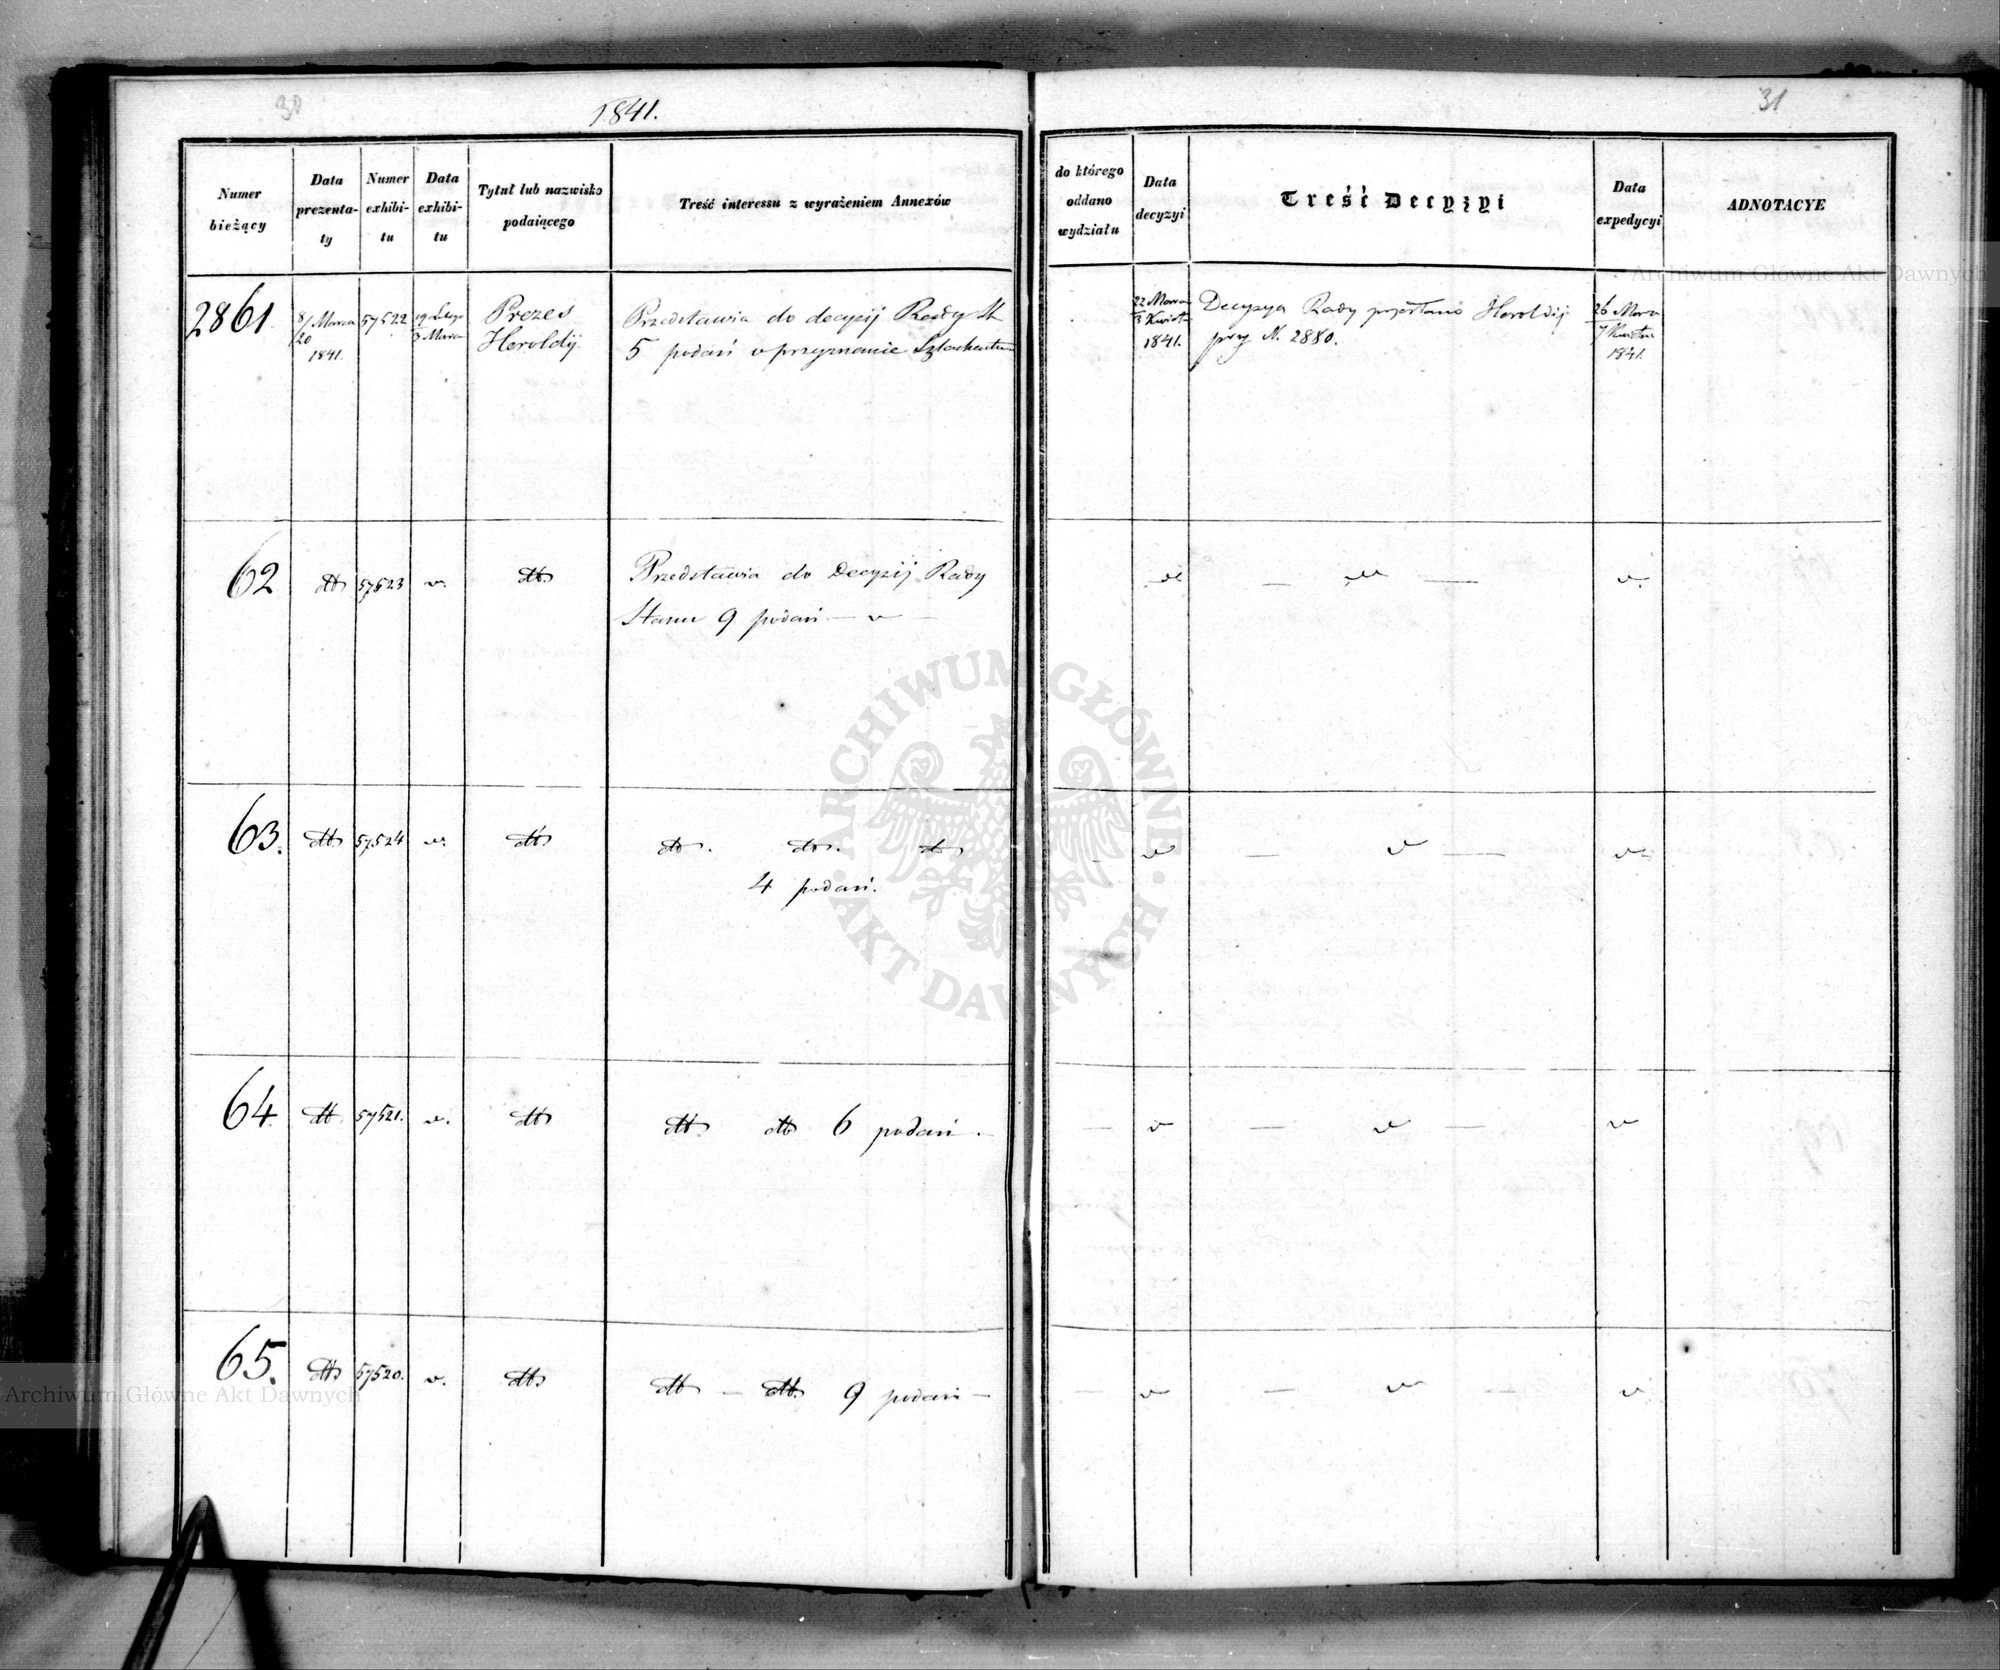 30
1841.
31
Numer bieżący
Data prezenta-ty
Numer exhibi-tu
Data exhibi-tu
Tytuł lub nazwisko podaiącego
Treść interessu z wyrażeniem Annexów
do którego oddano wydziału
Data decyzyi
Treść Decyzyi
Data expedycyi
ADNOTACYE
2861
8/20 Marca 1841.
57522
19 Lutego
3 Marca
Prezes
Heroldij
Przedstawia do decyzij Rady St
5 podań o przyznanie Szlachectwa
22 Marca
3 Kwiet
1841.
Decyzya Rady przesłano Heroldij
przy N. 2880.
26 Marca
7 Kwietn
1841.
62
dtto
57523
v.
dtto
Przedstawia do Decyzij Rady
Stanu 9 podań — v —
v
— v —
v.
63.
dtto
57524
v.
dtto
dto. dto. dto
4 podań.
v
— v —
v
64
dtto
57521.
v.
dtto
dtto dtto 6 podań.
— v
— v —
v
65.
dtto
57520.
v.
dtto
dtto — dtto 9 podań —
— v
— v —
v
Archiwum Główne Akt Dawnych
ARCHIWUM GŁÓWNE
AKT DAWNYCH
Archiwum Główne Akt Dawnych